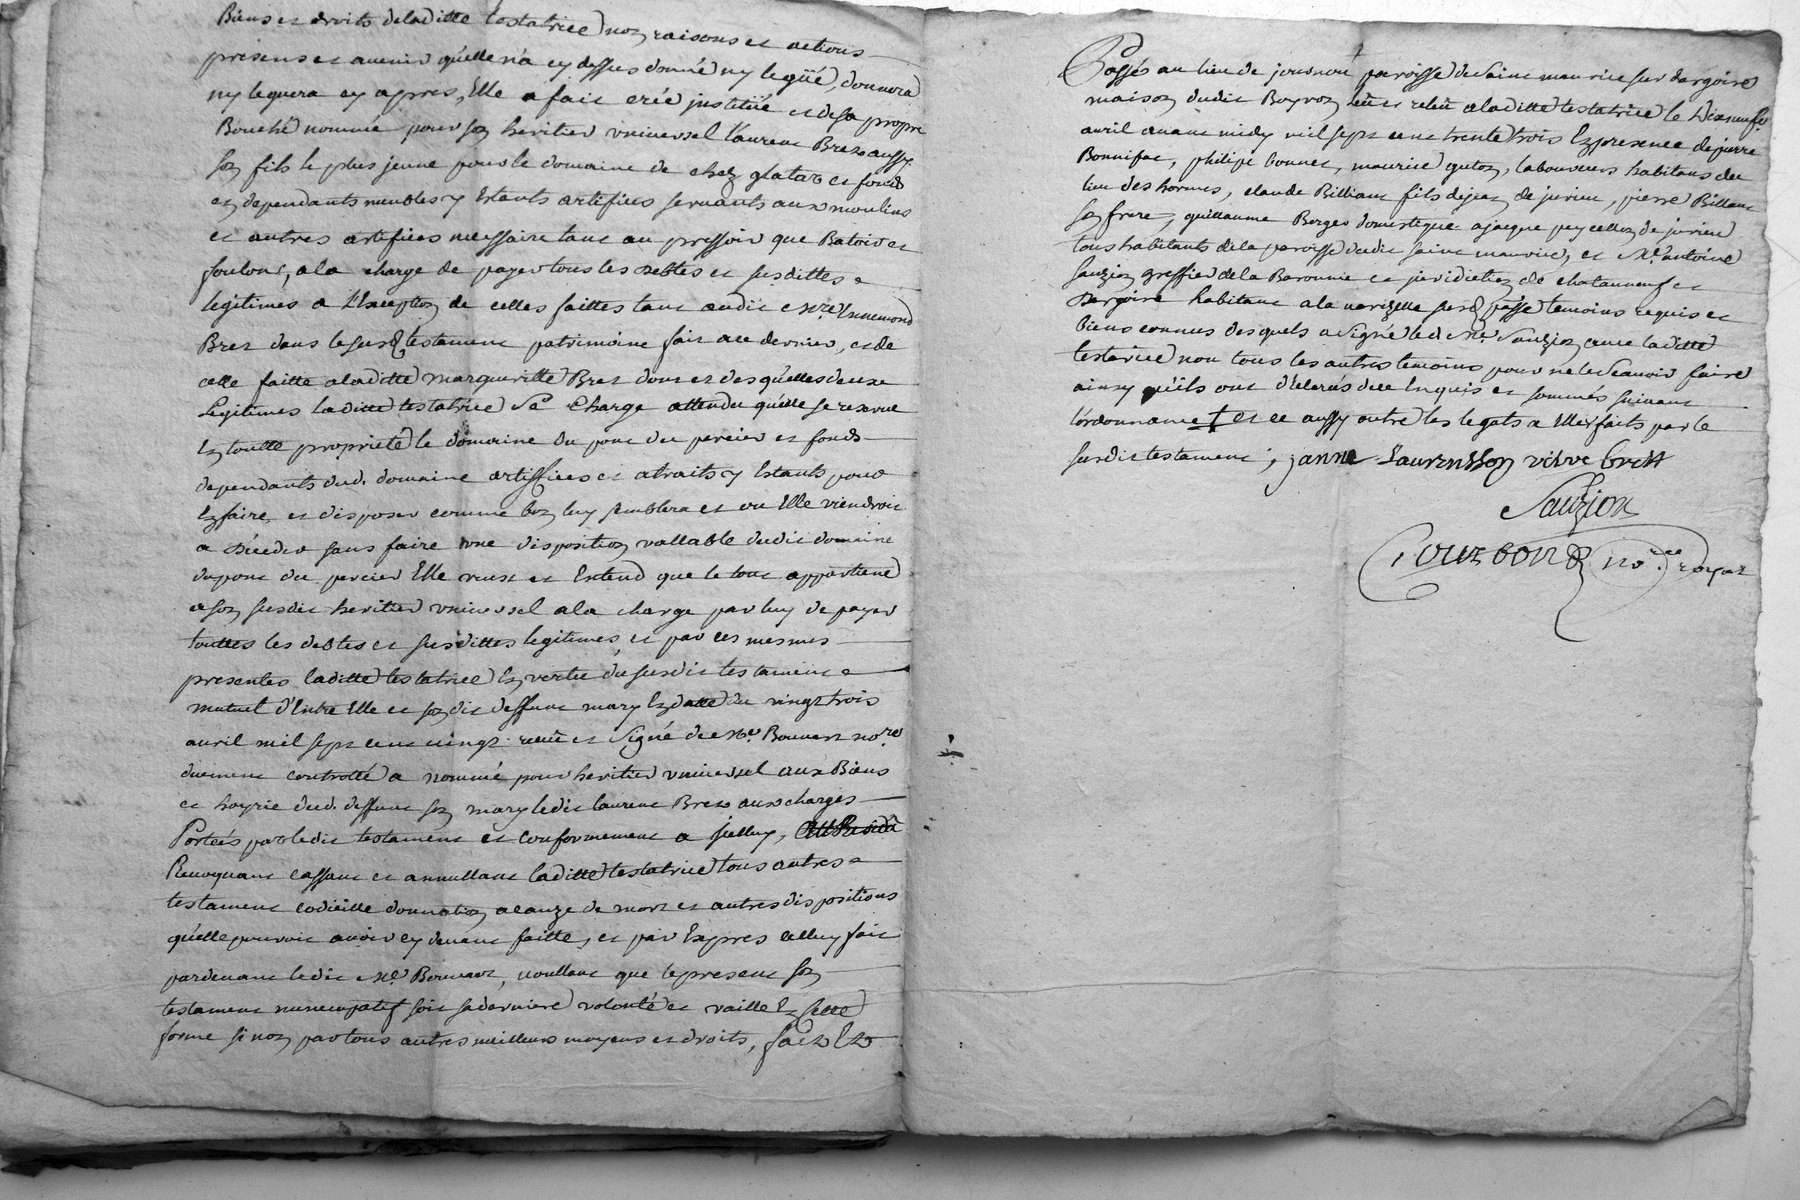 Biens et droits deladitte testatrice noz raisons et actions
presens et avenir quelle n'a cy dessus donné ny legüé, donnera
ny leguera cy apres, Elle a fait créé institüé et de sa propre
Bouche nommé pour soz heritier universel Laurent Bret aussy
soz fils le plus jeune pour le domaine de chez glatar et fonds
ez dependants meubles y Estants artifices servants aux moulins
et autres artifices necessaire tant au pressoir que Batoir et
foulons, a la charge de payer tous les debtes et susdittes
legitimes a l'Exceptioz de celles faittes tant audit Mre Ennemond
Bret dans le susd testament patrimoine fait au dernier, et de
celle faitte a laditte margueritte Bret dont et desquelles deux
Legitimes laditte testatrice se charge attendu quelle se reserve
Ez toutte proprieté le domaine du pont du percier et fonds
dependants dud. domaine artiffices et atraits y Estants pour
Ez faire et disposer comme boz luy semblera et ou Elle viendroit
a déceder sans faire une dispositioz vallable dudit domaine
du pont du percier Elle veust et Entend que le tout appartiene
a soz susdit heritier universel a la charge par luy de payer
touttes les debtes et susdittes legitimes, et par ces mesmes
presentes laditte testatrice Ez vertu du susdit testament
mutuel d'Entre Elle et soz dit deffunt mary Ez datte du vingt trois
avril mil sept cent vingt receu et Signé de Me Bouvart nore
duement controllé a nommé pour heritier universel aux Biens
et hoyrie dud. deffunt soz mary ledit laurent Bret aux charges
Portées par ledit testament et conformement a icelluy,
Revoquant cassant et annullant laditte testatrice tous autres
testament codicille donnatioz a cauze de mort et autres dispositions
qu'elle pouvoit avoir cy devant faitte, et par Expres celluy fait
pardevant ledit Me Bouvart, voullant que le present soz
testament nuncupatif soit sa derniere volonté et vaille Ez cette
forme si noz par tous autres meilleurs moyens et droits, fait Et
Passés au lieu de journou paroisse de Saint maurice sur dargoire
maisoz dudit Boyroz leüe et releüe a laditte testatrice le Dixneufe
avril avant midy mil sept cent trente trois Ez presence de pierre
Bonnifac, philipe bonnet, maurice gutoz, laboureurs habitans du
lieu des hormes, claude Billiant fils de jeaz de jurieu, pierre Billant
soz frere, guillaume Berger domestique a jacque peycelloz de jurieu
tous habitants de la paroisse dudit saint maurice, et Me antoine
Sauzioz greffier de la Baronnie et juridictioz de chatauneuf et
dargoire habitant a la varizelle susd paroisse temoins requis et
biens connus desquels a Signé led. Me Sauzioz avec laditte
testatrice non tous les autres temoins pour ne le scavoir faire
ainsy qu'ils ont déclarés de ce Enquis et sommés suivant
l'ordonnance † et ce aussy outre les legats a Elle faits par le
susdit testament. janne Laurensson veuve brett
Sauzion
nore royal